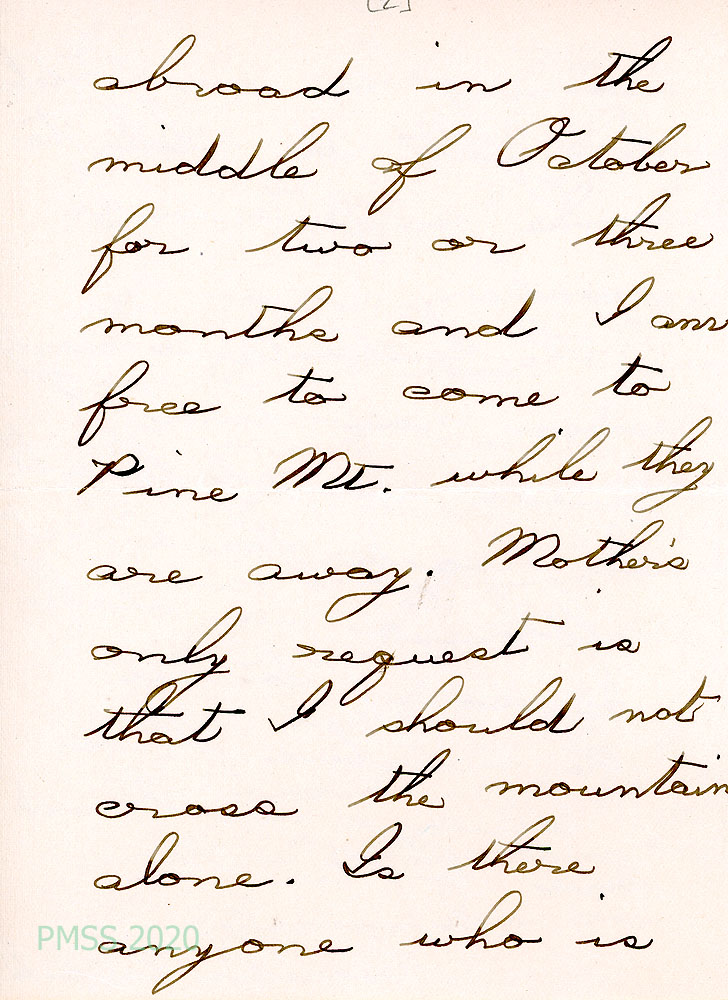 [2]
abroad in the
middle of October
for two or three
months and I am
free to come to
Pine Mt. while they
are away. Mother's
only request is
that I should not
cross the mountain
alone. Is there
anyone who is
PMSS 2020